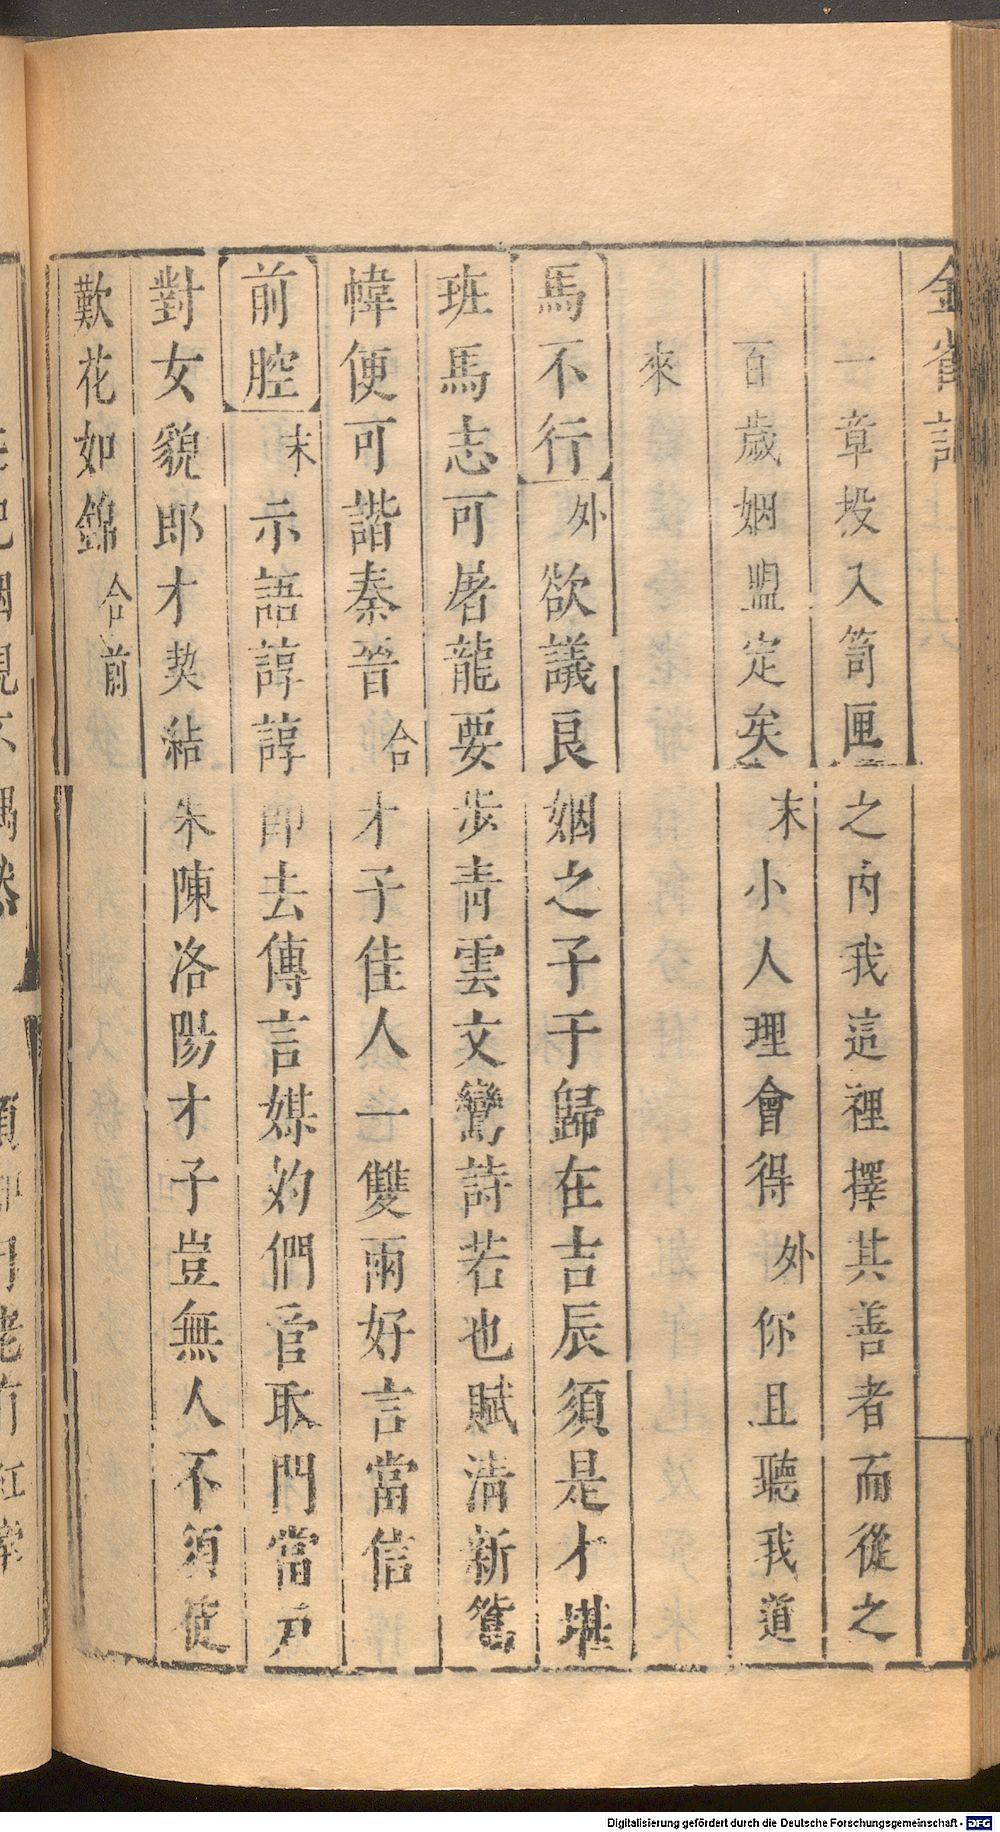 金雀記
一章投入笥匣之內我這裡擇其善者而從之
百歲姻盟定矣末小人理會得外你且聽我道
來
馬不行外欲議良姻之子于歸在吉辰須是才堪
班馬志可屠龍要步青雲文鸞詩若也賦清新鴛
幃便可諧秦晉合才子佳人一雙兩好言當信
前腔末示語諄諄即去傳言媒妁們管取門當戶
對女貌郎才契結朱陳洛陽才子豈無人不須使
歎花如錦合前
Digitalisierung gefördert durch die Deutsche Forschungsgemeinschaft - DFG